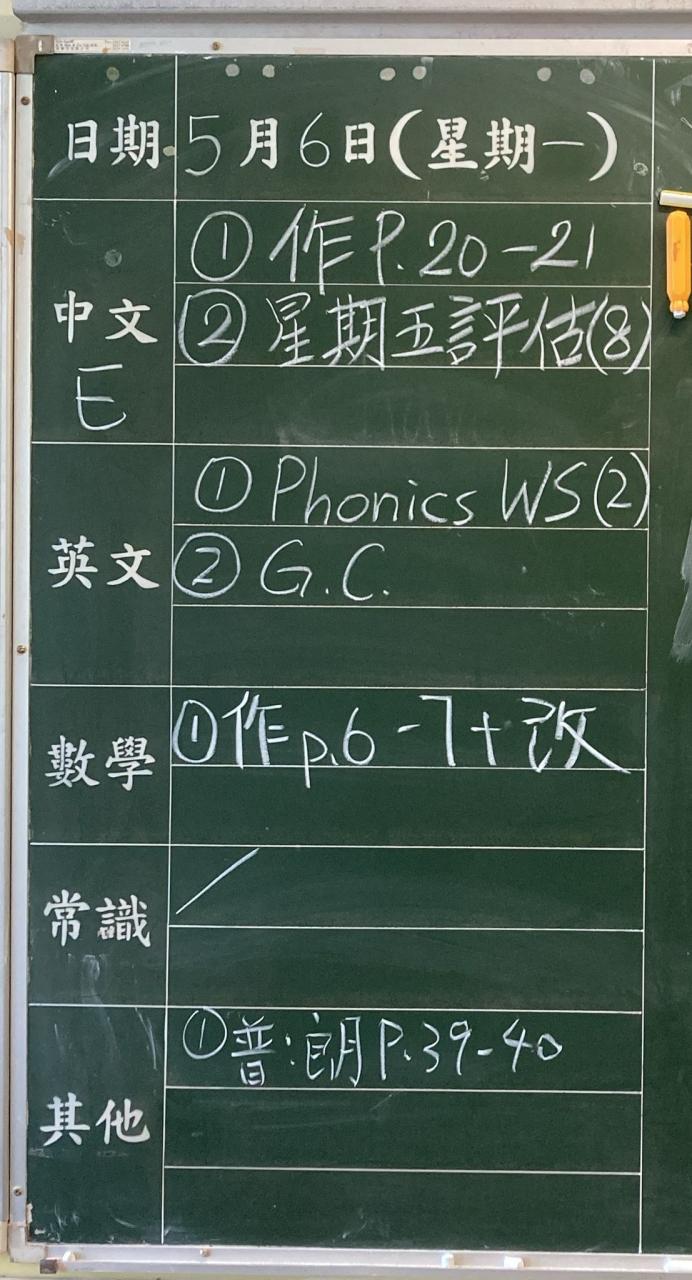 日期 5月6日(星期一)
① 作 P.20-21
中文 ② 星期五評估(8)
E
① Phonics WS(2)
英文 ② G.C.
數學 ①作 p.6-7+改
常識 /
①普:朗P.39-40
其他